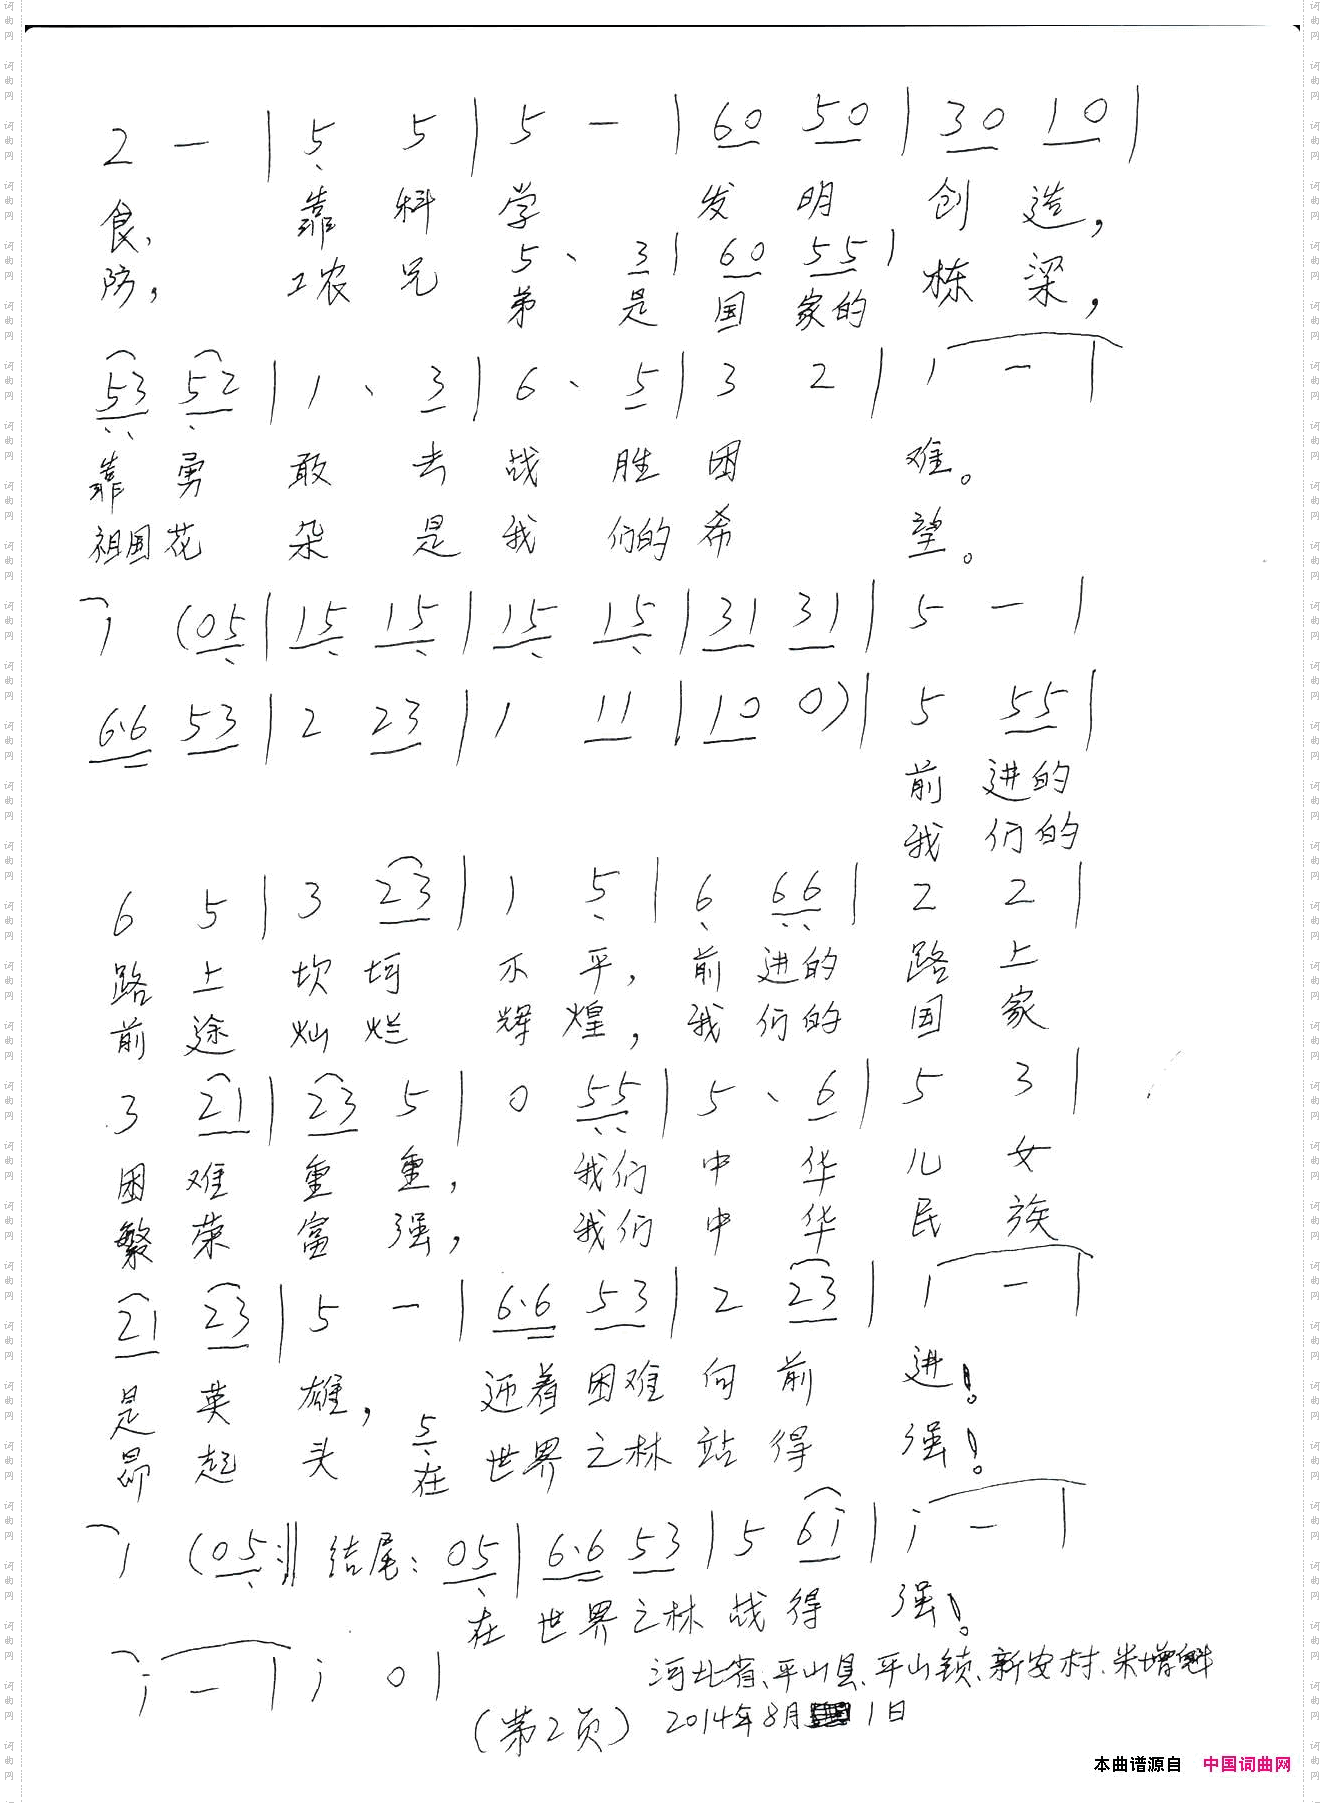 2 — | 5 5 | 5 — | 60 50 | 30 10 |
食、 靠 科 学 发 明 创 造，
5 · 3 | 60 55 |
防， 工农 兄 弟 是 国 家的 栋 梁，
53 52 | 1 · 3 | 6 · 5 | 3 2 | 1 — |
靠 勇 敢 去 战 胜 困 难。
祖国 花 朵 是 我 们的 希 望。
1 (05 | 15 15 | 15 15 | 31 31 | 5 — |
6·6 53 | 2 23 | 1 11 | 10 0) | 5 55 |
前 进的
我 们的
6 5 | 3 23 | 1 5 | 6 66 | 2 2 |
路 上 坎 坷 不 平， 前 进的 路 上
前 途 灿 烂 辉 煌， 我 们的 国 家
3 21 | 23 5 | 0 55 | 5 · 6 | 5 3 |
困 难 重 重， 我们 中 华 儿 女
繁 荣 富 强， 我们 中 华 民 族
21 23 | 5 — | 6·6 53 | 2 23 | 1 — |
是 英 雄， 迎着 困难 向 前 进！
5
昂 起 头 在 世界 之林 站 得 强！
1 (05 :‖ 结尾： 05 | 6·6 53 | 5 6i | i — |
在 世界 之林 战 得 强！
i — | i 0 |
河北省、平山县、平山镇、新安村、朱增魁
(第2页) 2014年8月 1日
本曲谱源自 中国词曲网